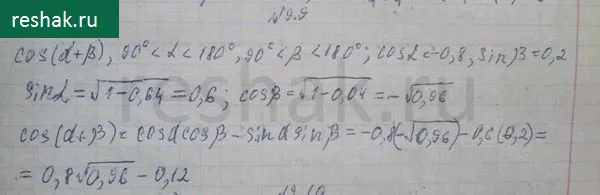 №9.9
cos(α+β), 90°<α<180°, 90°<β<180°; cosα=-0,8, sinβ=0,2
sinα=√(1-0,64)=0,6; cosβ=√(1-0,04)=-√0,96
cos(α+β)=cosαcosβ-sinαsinβ=-0,8(-√0,96)-0,6(0,2)=
=0,8√0,96-0,12
reshak.ru